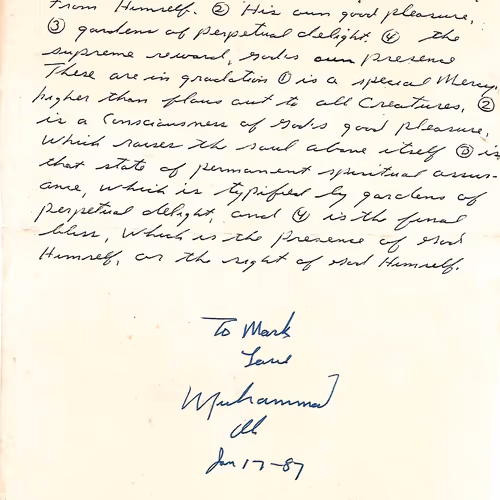 from Himself. ② His own good pleasure,
③ gardens of perpetual delight. ④ the
supreme reward, God's own presence
These are in gradation ① is a special Mercy,
higher than flows out to all Creatures, ②
is a Consciousness of God's good pleasure,
Which raises the soul above itself ③ is
that state of permanent spiritual assur-
ance, which is typified by gardens of
perpetual delight, and ④ is the final
bliss, Which is the Presence of God
Himself, or the sight of God Himself.
To Mark
Love
Muhammad
Ali
Jan 17-87